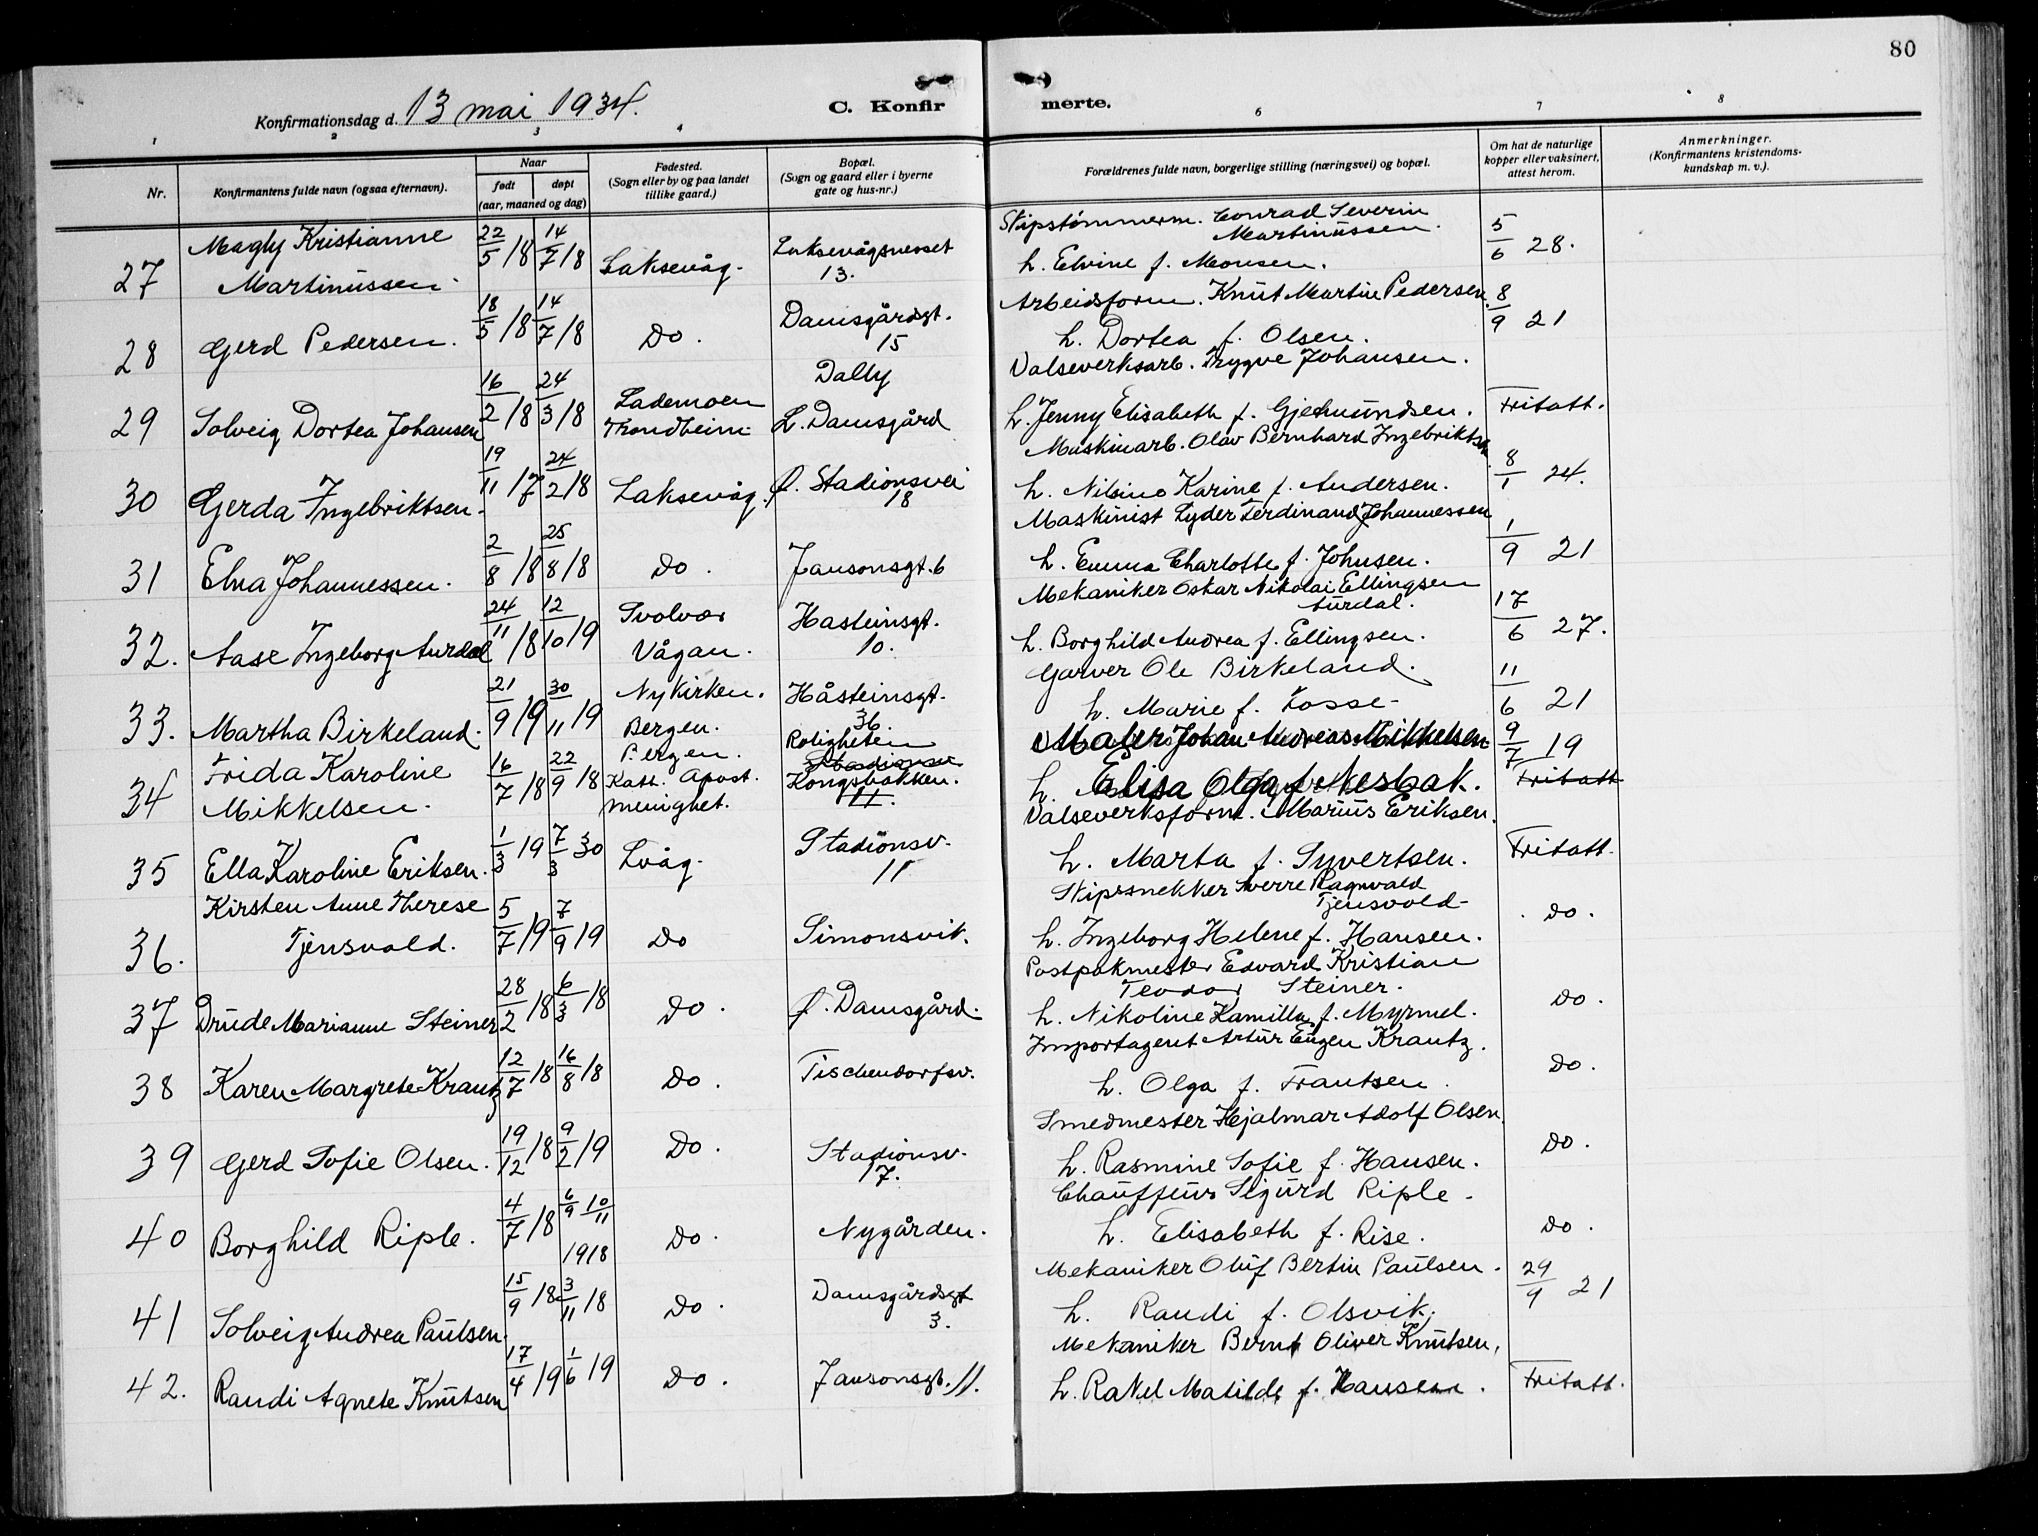 80
Konfirmationsdag d. 13 mai 1934.
C. Konfirmerte.
1 2 3 4 6 7 8
Nr.
Konfirmantens fulde navn (ogsaa efternavn).
Naar
født
døpt
(aar, maaned og dag)
Fødested.
(Sogn eller by og paa landet
tillike gaard.)
Bopæl.
(Sogn og gaard eller i byerne
gate og hus-nr.)
Forældrenes fulde navn, borgerlige stilling (næringsvei) og bopæl.
Om hat de naturlige
kopper eller vaksinert,
attest herom.
Anmerkninger.
(Konfirmantens kristendoms-
kundskap m. v.).
27 Magly Kristianne
Martinussen 22/5 18 14/7 18 Laksevåg. Laksevågsnesset
13. Skipstømmerm. Conrad Severin
Martinussen.
h. Elvine f. Monsen. 5/6 28.
28 Gerd Pedersen. 18/5 18 14/7 18 Do. Damsgårdsgt.
15 Arbeidsform. Knut Martin Pedersen.
h. Dortea f. Olsen. 8/9 21
29 Solveig Dortea Johansen 16/2 18 24/3 18 Lademoen
Trondheim Dally
L. Damsgård Valseverksarb. Trygve Johansen.
h. Jenny Elisabeth f. Gjermundsen. Fritatt.
30 Gerda Ingebriktsen. 19/11 17 24/2 18 Laksevåg. Ø. Stadionsvei
18 Maskinarb. Olav Bernhard Ingebriktsen.
h. Nilsine Karine f. Andersen. 8/1 24.
31 Elna Johannessen. 2/8 18 25/8 18 Do. Jansonsgt. 6 Maskinist Lyder Ferdinand Johannessen
h. Emma Charlotte f. Johnsen. 1/9 21
32. Aase Ingeborg Aurdal 24/11 18 12/10 19 Svolvær
Vågan. Hasteinsgt.
10. Mekaniker Oskar Nikolai Ellingsen
Aurdal.
h. Borghild Andrea f. Ellingsen. 17/6 27.
33. Martha Birkeland. 21/9 19 30/11 19 Nykirken.
Bergen. Håsteinsgt.
36 Garver Ole Birkeland.
h. Marie f. Fosse. 11/6 21
34 Frida Karoline
Mikkelsen. 16/7 18 22/9 18 Bergen.
Kath. Apost.
menighet. Roligheten
Stadionsv
Kongsbakken.
11. Maler Johan Andreas Mikkelsen
h. Elisa Olga f. Nesbak. 9/7 19
Fritatt
35 Ella Karoline Eriksen. 1/3 19 7/3 30 Lvåg. Stadionsv.
11 Valseverksform. Marius Eriksen.
h. Marta f. Syvertsen. Fritatt.
36. Kirsten Anne Therese
Tjensvold. 5/7 19 7/9 19 Do Simonsvik. Skipssnekker Sverre Ragnvald
Tjensvold.
h. Ingeborg Helene f. Hansen. Do.
37 Drude Marianne Steiner 28/2 18 6/3 18 Do. Ø. Damsgård. Postpakmester Edvard Kristian
Teodor Steiner.
h. Nikoline Kamilla f. Myrmel. Do.
38 Karen Margrete Krantz 12/7 18 16/8 18 Do. Tischendorfsv. Importagent Artur Eugen Krantz.
h. Olga f. Frantsen. Do.
39 Gerd Sofie Olsen. 19/12 18 9/2 19 Do. Stadionsv.
17. Smedmester Hjalmar Adolf Olsen.
h. Rasmine Sofie f. Hansen. Do.
40 Borghild Riple. 4/7 18 6/9 10/11
1918 Do. Nygården. Chauffeur Sigurd Riple.
h. Elisabeth f. Rise. Do.
41 Solveig Andrea Paulsen. 15/9 18 3/11 18 Do. Damsgårdsgt
3. Mekaniker Oluf Bertin Paulsen.
h. Randi f. Olsvik. 29/9 21
42. Randi Agnete Knutsen 17/4 19 1/6 19 Do. Jansonsgt. 11. Mekaniker Bernt Oliver Knutsen.
h. Rakel Matilde f. Hansen. Fritatt.